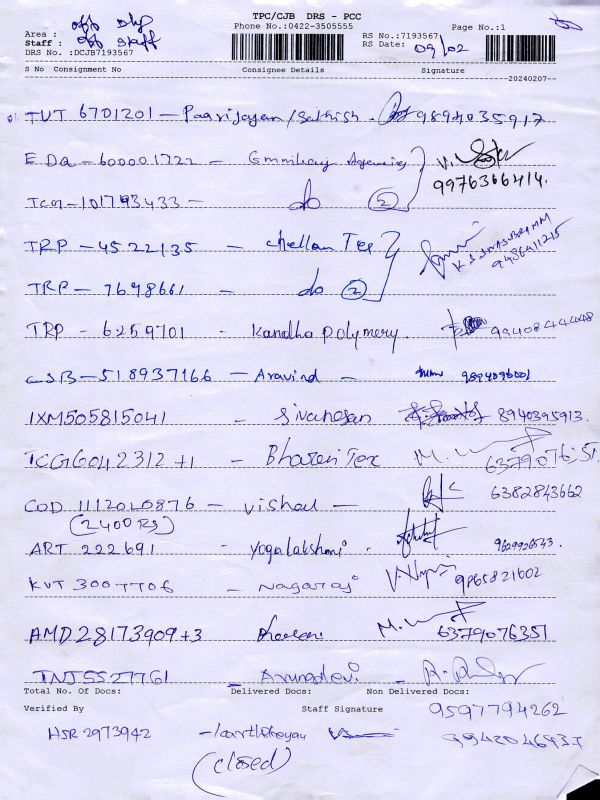 TPC/CJB DRS - PCC
Phone No.:0422-3505555 Page No.:1
Area : off
Staff : off staff
DRS No. :DCJB7193567
RS No.:7193567
RS Date: 09/02
S No Consignment No Consignee Details Signature
20240207
TVT 6701201 - Paarijayan/Sathish. 9894035917
EDA - 600001722 - Agencies
9976366414.
101793433 - do 2
TRP - 4522135 - chellan Tex
9486411215
TRP - 7698661 - do 2
TRP - 6259701 - Kandha polymery.
CJB - 518937166 - Aravind -
IXM505815041 - Sivanesan 8940395913.
TCG6042312+1 - Bharani Tex 6379076351
COD 1112020876 - vishal - 6382843662
(2400 RS)
ART 222691 - yogalakshmi.
KVT 3007706 - Nagaraj 9865821602
AMD 28173909+3 Bharani 6379076351
TNJ5527761 - Arundevi -
Total No. Of Docs: Delivered Docs: Non Delivered Docs:
Verified By Staff Signature 9597794262
HSR 2973942 - karthikeyan
(closed)